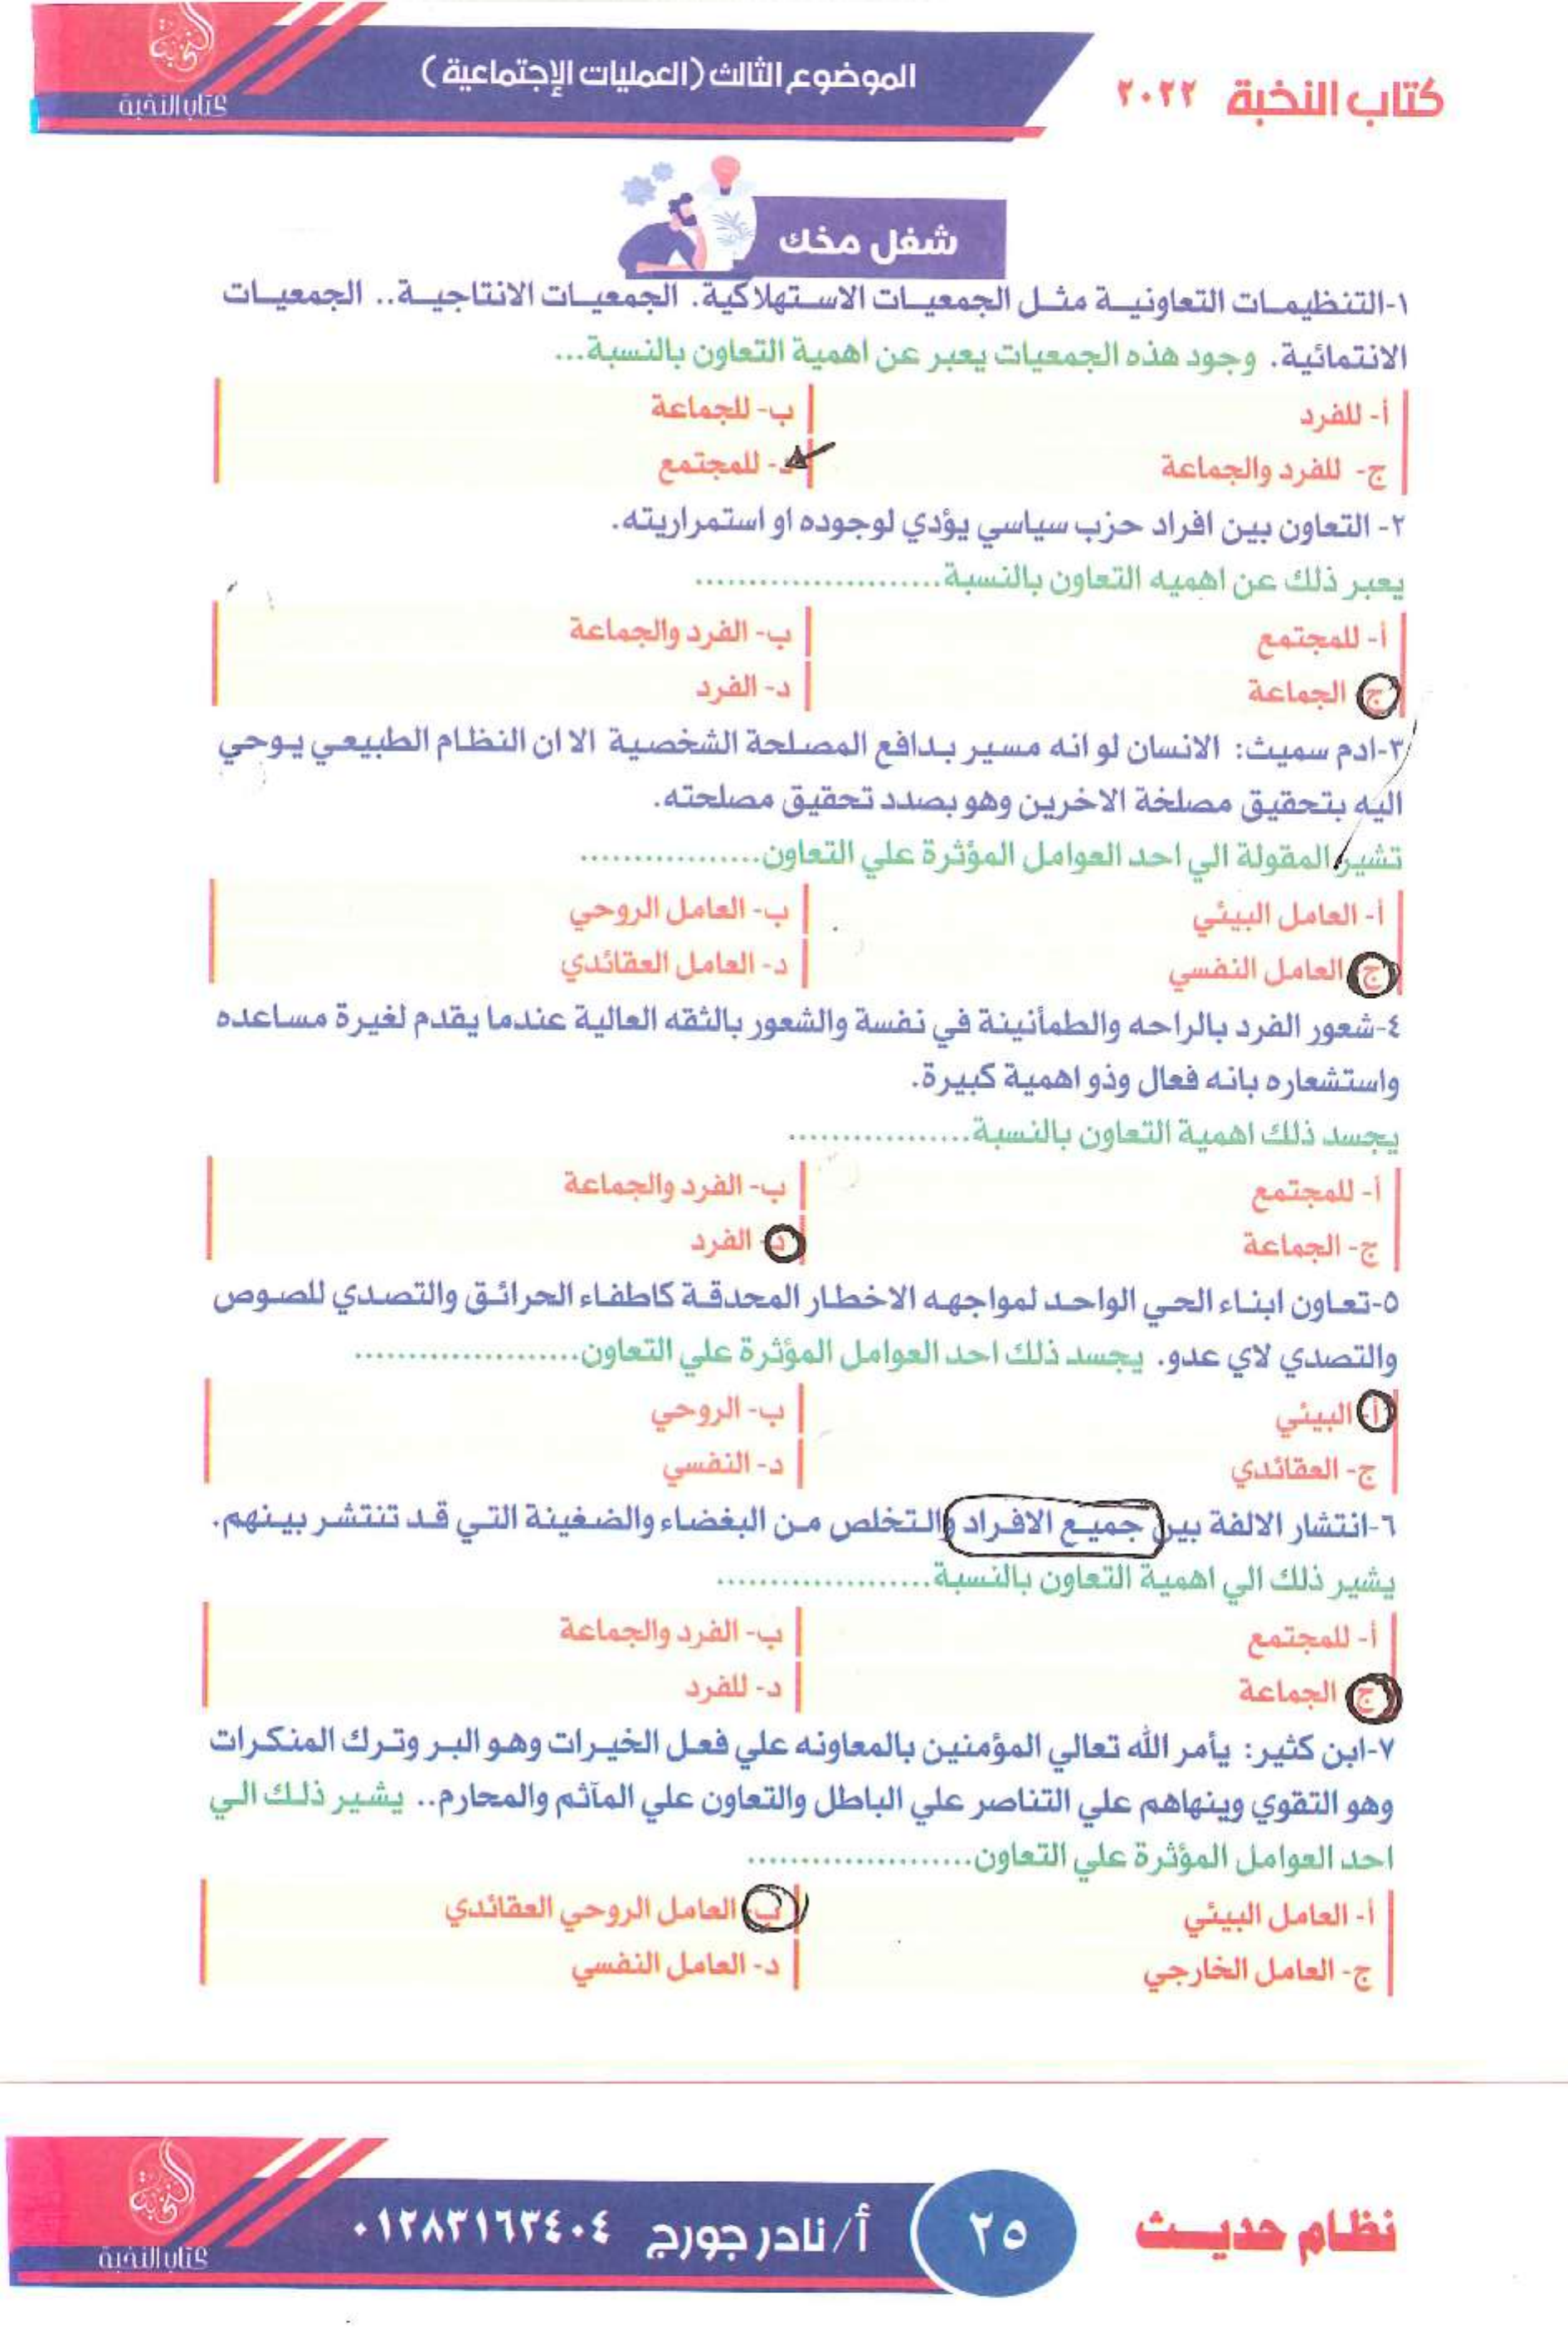 كتاب النخبة ٢٠٢٢
الموضوع الثالث (العمليات الإجتماعية)
النخبة
كتاب النخبة
شغل مخك
١-التنظيمات التعاونية مثل الجمعيات الاستهلاكية. الجمعيات الانتاجية.. الجمعيات
الانتمائية. وجود هذه الجمعيات يعبر عن اهمية التعاون بالنسبة...
أ- للفرد
ب- للجماعة
ج- للفرد والجماعة
د- للمجتمع
٢- التعاون بين افراد حزب سياسي يؤدي لوجوده او استمراريته.
يعبر ذلك عن اهميه التعاون بالنسبة.......................
أ- للمجتمع
ب- الفرد والجماعة
ج الجماعة
د- الفرد
٣-ادم سميث: الانسان لو انه مسير بدافع المصلحة الشخصية الا ان النظام الطبيعي يوحي
اليه بتحقيق مصلخة الاخرين وهو بصدد تحقيق مصلحته.
تشير المقولة الي احد العوامل المؤثرة علي التعاون.................
أ- العامل البيئي
ب- العامل الروحي
ج العامل النفسي
د- العامل العقائدي
٤-شعور الفرد بالراحه والطمأنينة في نفسة والشعور بالثقه العالية عندما يقدم لغيرة مساعده
واستشعاره بانه فعال وذو اهمية كبيرة.
يجسد ذلك اهمية التعاون بالنسبة.................
أ- للمجتمع
ب- الفرد والجماعة
ج- الجماعة
د- الفرد
٥-تعاون ابناء الحي الواحد لمواجهه الاخطار المحدقة كاطفاء الحرائق والتصدي للصوص
والتصدي لاي عدو. يجسد ذلك احد العوامل المؤثرة علي التعاون.....................
أ- البيئي
ب- الروحي
ج- العقائدي
د- النفسي
٦-انتشار الالفة بين جميع الافراد والتخلص من البغضاء والضغينة التي قد تنتشر بينهم.
يشير ذلك الي اهمية التعاون بالنسبة....................
أ- للمجتمع
ب- الفرد والجماعة
ج الجماعة
د- للفرد
٧-ابن كثير: يأمر الله تعالي المؤمنين بالمعاونه علي فعل الخيرات وهو البر وترك المنكرات
وهو التقوي وينهاهم علي التناصر علي الباطل والتعاون علي المآثم والمحارم.. يشير ذلك الي
احد العوامل المؤثرة علي التعاون.....................
أ- العامل البيئي
ب- العامل الروحي العقائدي
ج- العامل الخارجي
د- العامل النفسي
نظام حديث
٢٥
أ/نادر جورج ٠١٢٨٣١٦٣٤٠٤
النخبة
كتاب النخبة